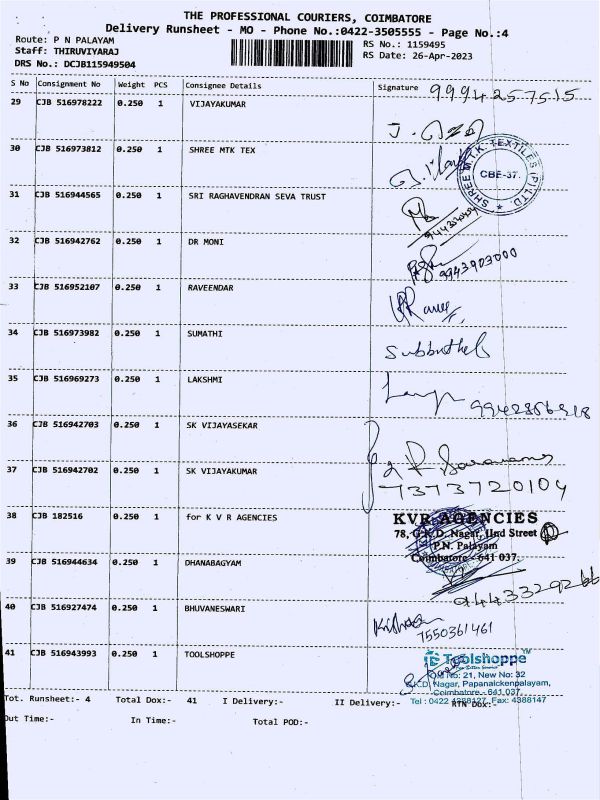 THE PROFESSIONAL COURIERS, COIMBATORE
Delivery Runsheet - MO - Phone No.:0422-3505555 - Page No.:4
Route: P N PALAYAM
RS No.: 1159495
Staff: THIRUVIYARAJ
RS Date: 26-Apr-2023
DRS No.: DCJB115949504
S No Consignment No Weight PCS Consignee Details Signature 9994257515
29 CJB 516978222 0.250 1 VIJAYAKUMAR
30 CJB 516973812 0.250 1 SHREE MTK TEX
SHREE M.T.K. TEXTILES (P) LTD. CBE-37.
31 CJB 516944565 0.250 1 SRI RAGHAVENDRAN SEVA TRUST
32 CJB 516942762 0.250 1 DR MONI
9943903000
33 CJB 516952107 0.250 1 RAVEENDAR
34 CJB 516973982 0.250 1 SUMATHI
35 CJB 516969273 0.250 1 LAKSHMI
36 CJB 516942703 0.250 1 SK VIJAYASEKAR
37 CJB 516942702 0.250 1 SK VIJAYKUMAR
7373720104
38 CJB 182516 0.250 1 for K V R AGENCIES
KVR AGENCIES
78, G.K.D. Nagar, IInd Street
P.N. Palayam
Coimbatore - 641 037.
39 CJB 516944634 0.250 1 DHANABAGYAM
9443329266
40 CJB 516927474 0.250 1 BHUVANESWARI
7550361461
41 CJB 516943993 0.250 1 TOOLSHOPPE
Toolshoppe
Old No: 21, New No: 32
G.K.D. Nagar, Papanaickenpalayam,
Coimbatore - 641 037.
Tel : 0422 4388127, Fax: 4388147
Tot. Runsheet:- 4 Total Dox:- 41 I Delivery:- II Delivery:- RTN Dox:-
Out Time:- In Time:- Total POD:-